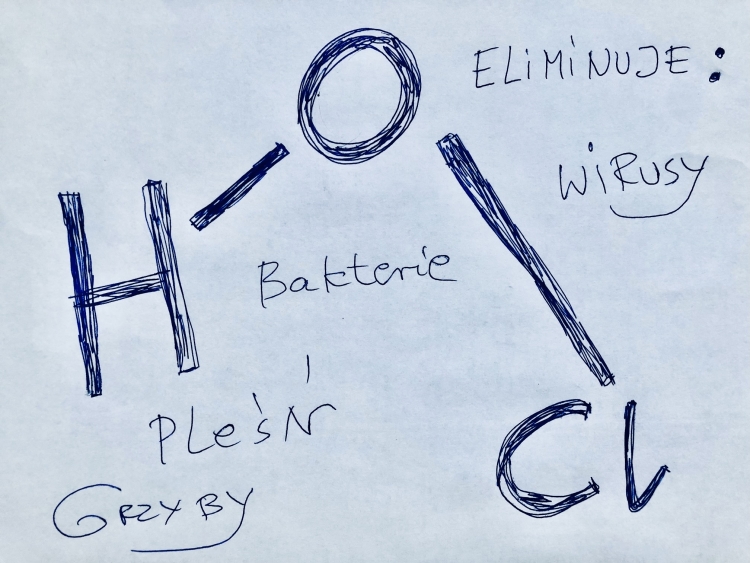 O
ELiMiNUJE:
H
WiRUSY
Bakterie
PLeśŃ
Cl
GRZYBY